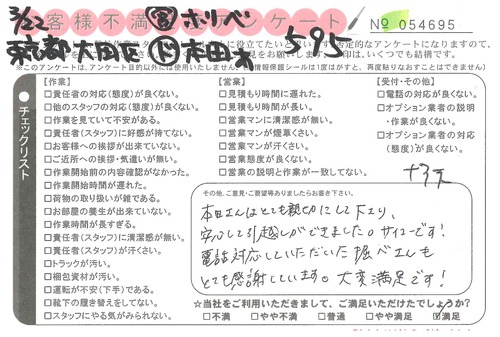 3/22 ㊂ ホリベ
お客様不満足アンケート
№ 054695
東京都大田区 本田 595
※このアンケートは、アンケート目的以外には使用いたしません。
チェックリスト
【作業】
□責任者の対応(態度)が良くない。
□他のスタッフの対応(態度)が良くない。
□作業を見ていて不安がある。
□責任者(スタッフ)に好感が持てない。
□お客様への挨拶が出来ていない。
□ご近所への挨拶・気遣いが無い。
□作業開始前の内容確認がなかった。
□作業開始時間が遅れた。
□荷物の取り扱いが雑である。
□お部屋の養生が出来ていない。
□作業時間が長すぎる。
□責任者(スタッフ)に清潔感が無い。
□責任者(スタッフ)が汗くさい。
□トラックが汚い。
□梱包資材が汚い。
□運転が不安(下手)である。
□靴下の履き替えをしてない。
□スタッフにやる気がみられない。
【営業】
□見積もり時間に遅れた。
□見積もり時間が長い。
□営業マンに清潔感が無い。
□営業マンが煙草くさい。
□営業マンが汗くさい。
□営業態度が良くない。
□営業の説明と作業が一致してない。
【受付・その他】
□電話の対応が良くない。
□オプション業者の説明・作業が良くない。
□オプション業者の対応(態度)が良くない。
その他、ご意見・ご要望等ありましたらお書き下さい。
本田さんはとても親切にして下さり、
安心して引越しができました。サイコーです!
電話対応していただいた堀べさんも
とても感謝しています。大変満足です!
☆当社をご利用いただきまして、ご満足いただけたでしょうか?
□不満 □やや不満 □普通 □やや満足 ☑満足